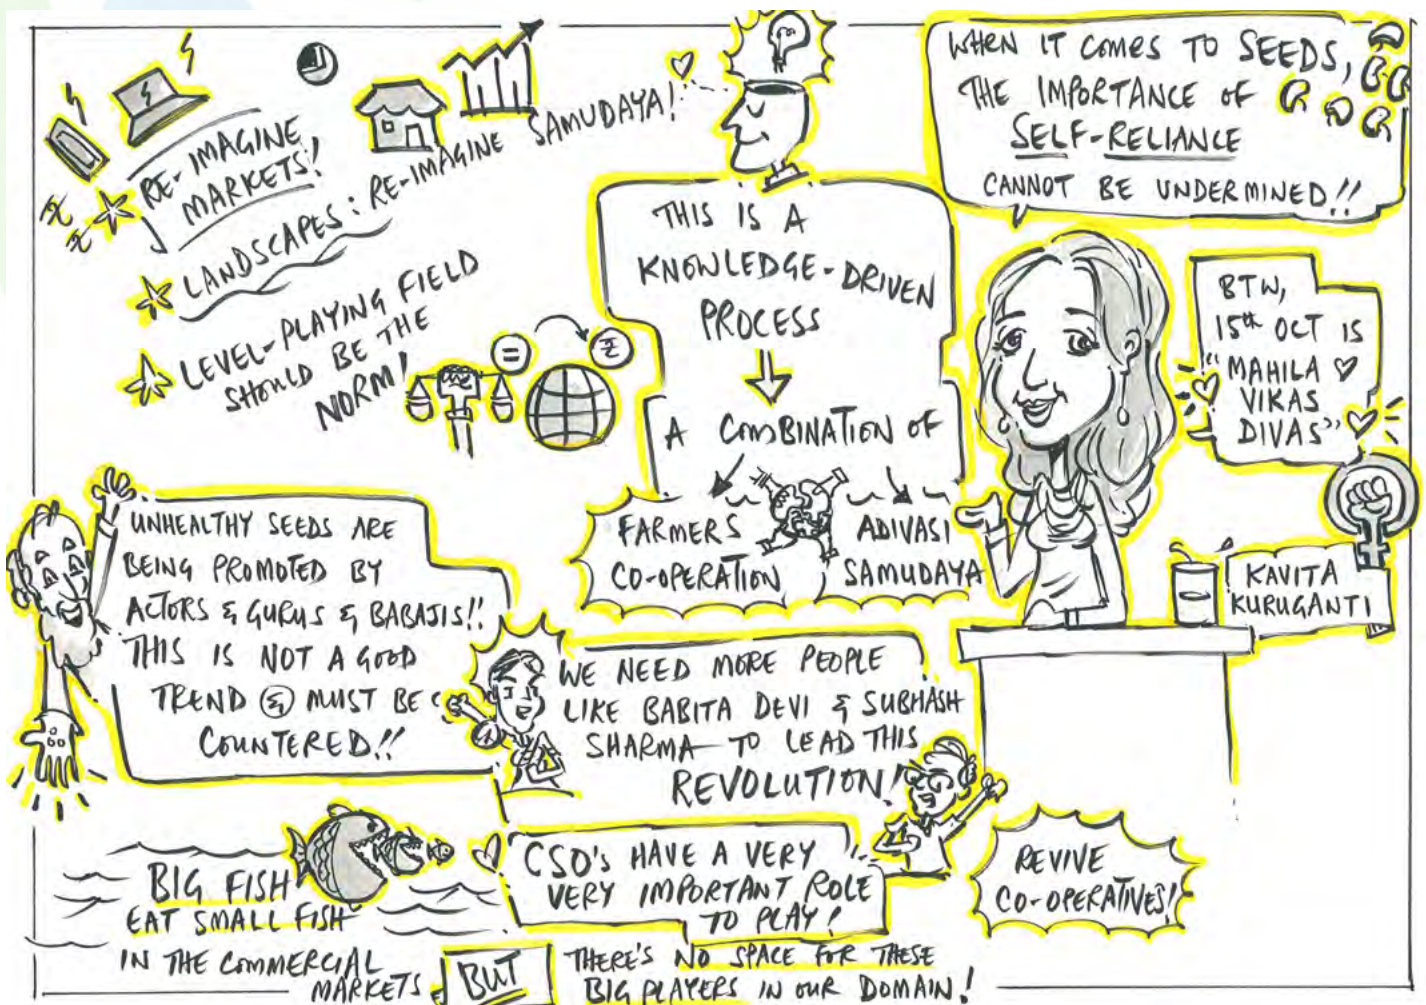 RE-IMAGINE
MARKETS!
LANDSCAPES: RE-IMAGINE SAMUDAYA!
LEVEL-PLAYING FIELD
SHOULD BE THE
NORM!
=
THIS IS A
KNOWLEDGE-DRIVEN
PROCESS
A COMBINATION OF
FARMERS
CO-OPERATION
ADIVASI
SAMUDAYA
WHEN IT COMES TO SEEDS,
THE IMPORTANCE OF
SELF-RELIANCE
CANNOT BE UNDERMINED!!
BTW,
15th OCT IS
"MAHILA
VIKAS
DIVAS"
KAVITA
KURUGANTI
UNHEALTHY SEEDS ARE
BEING PROMOTED BY
ACTORS & GURUS & BABAJIS!!
THIS IS NOT A GOOD
TREND & MUST BE
COUNTERED!!
WE NEED MORE PEOPLE
LIKE BABITA DEVI & SUBHASH
SHARMA TO LEAD THIS
REVOLUTION!
CSO's HAVE A VERY
VERY IMPORTANT ROLE
TO PLAY!
REVIVE
CO-OPERATIVES!
BIG FISH
EAT SMALL FISH
IN THE COMMERCIAL
MARKETS,
BUT
THERE'S NO SPACE FOR THESE
BIG PLAYERS IN OUR DOMAIN!